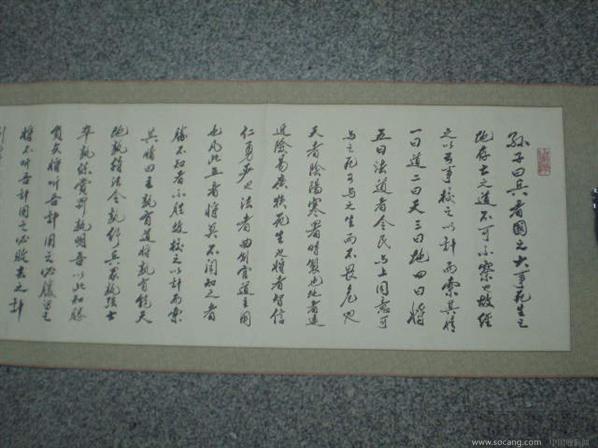 孙子曰兵者國之大事死生之
地存亡之道不可不察也故经
之以五事校之以计而索其情
一曰道二曰天三曰地四曰將
五曰法道者令民与上同意可
与之死可与之生而不畏危也
天者陰陽寒暑時製也地者遠
近險易廣狹死生也將者智信
仁勇嚴也法者曲制官道主用
也凡此五者將莫不闻知之者
勝不知者不勝故校之以计而索
其情曰主孰有道將孰有能天
地孰得法令孰行兵衆孰强士
卒孰练賞罰孰明吾以此知勝
負矣將听吾计用之必勝留之
將不听吾计用之必败去之计
www.socang.com